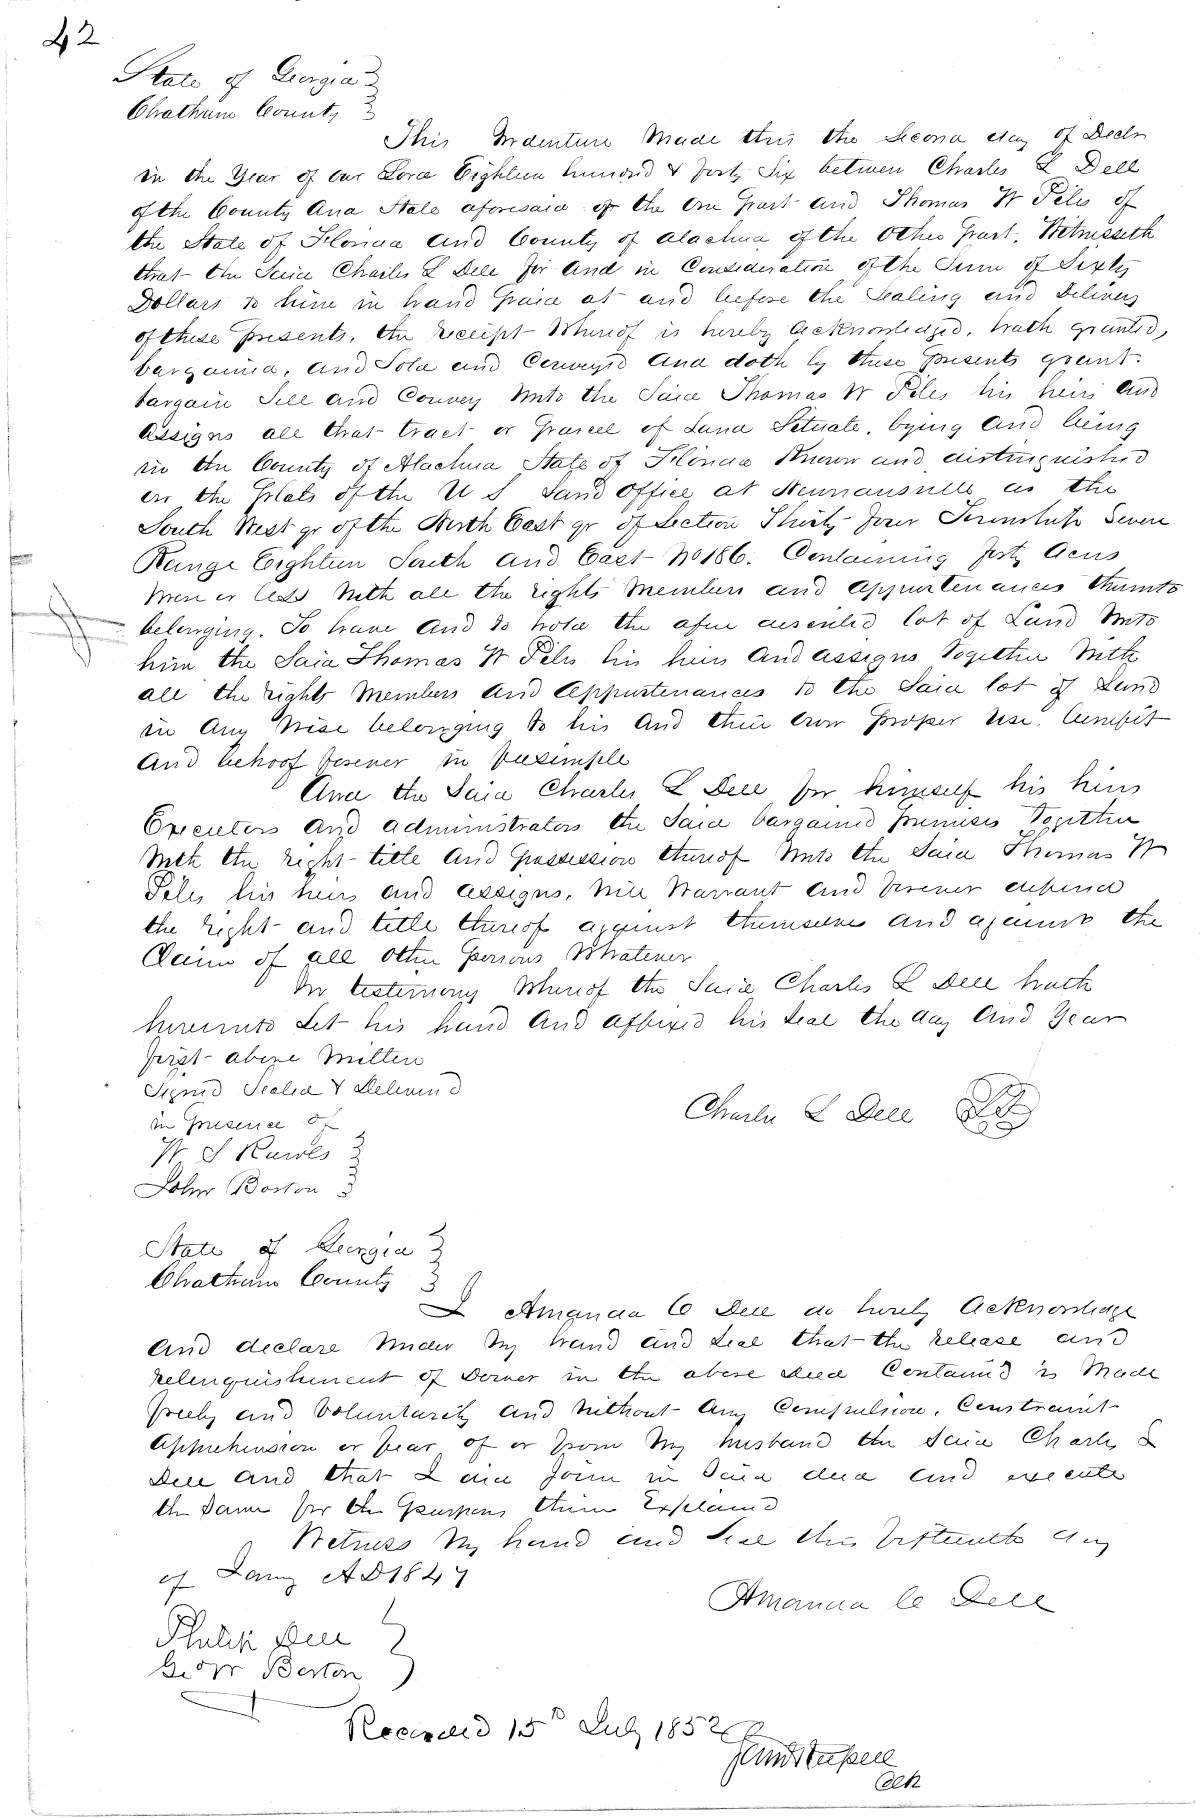 42
State of Georgia }
Chatham County }
This Indenture Made this the Second day of Decbr
in the Year of our Lord Eighteen hundred & forty Six between Charles L Dell
of the County and State aforesaid of the One part and Thomas W Piles of
the State of Florida and County of Alachua of the Other part. Witnesseth
that the Said Charles L Dell for and in Consideration of the Sum of Sixty
Dollars to him in hand paid at and before the Sealing and Delivery
of these presents, the receipt Whereof is hereby acknowledged, hath granted,
bargained, and Sold and Conveyed and doth by these presents grant
bargain Sell and Convey Unto the Said Thomas W Piles his heirs and
Assigns all that tract or parcel of Land Situate, lying and being
in the County of Alachua State of Florida Known and distinguished
on the plats of the U S Land Office at Newnansville as the
South West qr of the North East qr of Section Thirty four Township Seven
Range Eighteen South and East No 186. Containing forty Acres
More or less With all the rights Members and appurtenances thereunto
belonging. To have and to hold the afore described lot of Land Unto
him the Said Thomas W Piles his heirs and assigns Together With
all the rights Members and Appurtenances to the Said lot of Land
in any Wise belonging to his and their own proper use. benefit
and behoof forever in feesimple
And the Said Charles L Dell for himself his heirs
Executors and administrators the Said bargained premises Together
With the right title and possession thereof Unto the Said Thomas W
Piles his heirs and assigns, Will Warrant and forever defend
the right and title thereof against themselves and against the
Claim of all other persons Whatever
In testimony Whereof the Said Charles L Dell hath
hereunto Set his hand and affixed his Seal the day and Year
first above Written
Signed Sealed & Delivered
in presence of
Charles L Dell
W S Rawls }
John Boston }
State of Georgia }
Chatham County }
I Amanda C Dell do hereby Acknowledge
and declare Under My hand and Seal that the release and
relenquishment of Dower in the above Deed Contained is Made
freely and Voluntarily and Without Any Compulsion, Constraint
Apprehension or fear of or from My husband the Said Charles L
Dell and that I did Join in Said deed and execute
the Same for the Purposes therein Explained
Witness My hand and Seal this fifteenth day
of Jany AD 1847
Amanda C Dell
Philip Dell }
Geo W Boston }
Recorded 15th July 1852
Clk